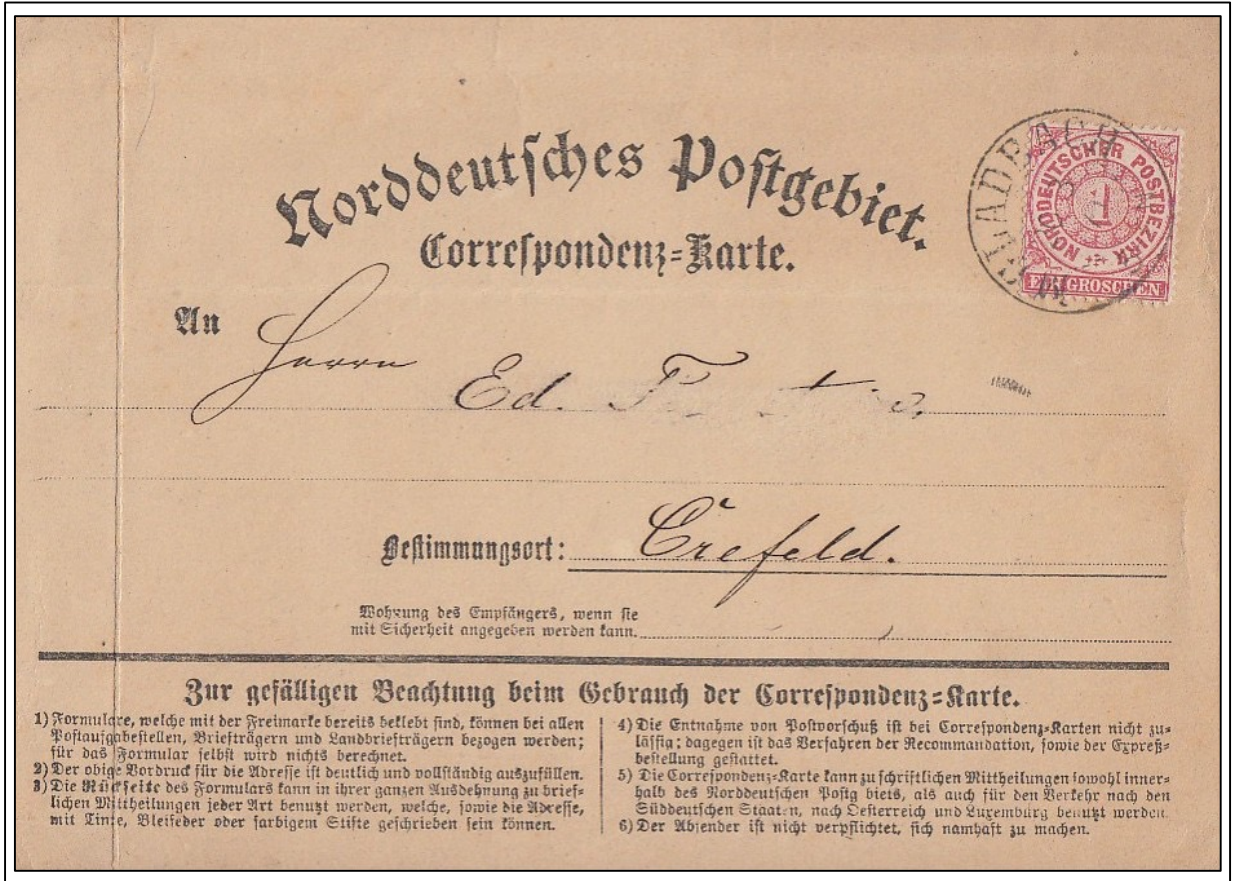 Norddeutsches Postgebiet.
Correspondenz-Karte.
NORDDEUTSCHER POSTBEZIRK
1
EIN GROSCHEN
M. GLADBACH
An
Herrn
Ed.
Bestimmungsort: Crefeld.
Wohnung des Empfängers, wenn sie
mit Sicherheit angegeben werden kann.
Zur gefälligen Beachtung beim Gebrauch der Correspondenz-Karte.
1) Formulare, welche mit der Freimarke bereits beklebt sind, können bei allen
Postaufgabestellen, Briefträgern und Landbriefträgern bezogen werden;
für das Formular selbst wird nichts berechnet.
2) Der obige Vordruck für die Adresse ist deutlich und vollständig auszufüllen.
3) Die Rückseite des Formulars kann in ihrer ganzen Ausdehnung zu brief-
lichen Mittheilungen jeder Art benutzt werden, welche, sowie die Adresse,
mit Tinte, Bleifeder oder farbigem Stifte geschrieben sein können.
4) Die Entnahme von Postvorschuß ist bei Correspondenz-Karten nicht zu-
lässig; dagegen ist das Verfahren der Recommandation, sowie der Expreß-
bestellung gestattet.
5) Die Correspondenz-Karte kann zu schriftlichen Mittheilungen sowohl inner-
halb des Norddeutschen Postg biets, als auch für den Verkehr nach den
Süddeutschen Staaten, nach Oesterreich und Luxemburg benutzt werden.
6) Der Absender ist nicht verpflichtet, sich namhaft zu machen.